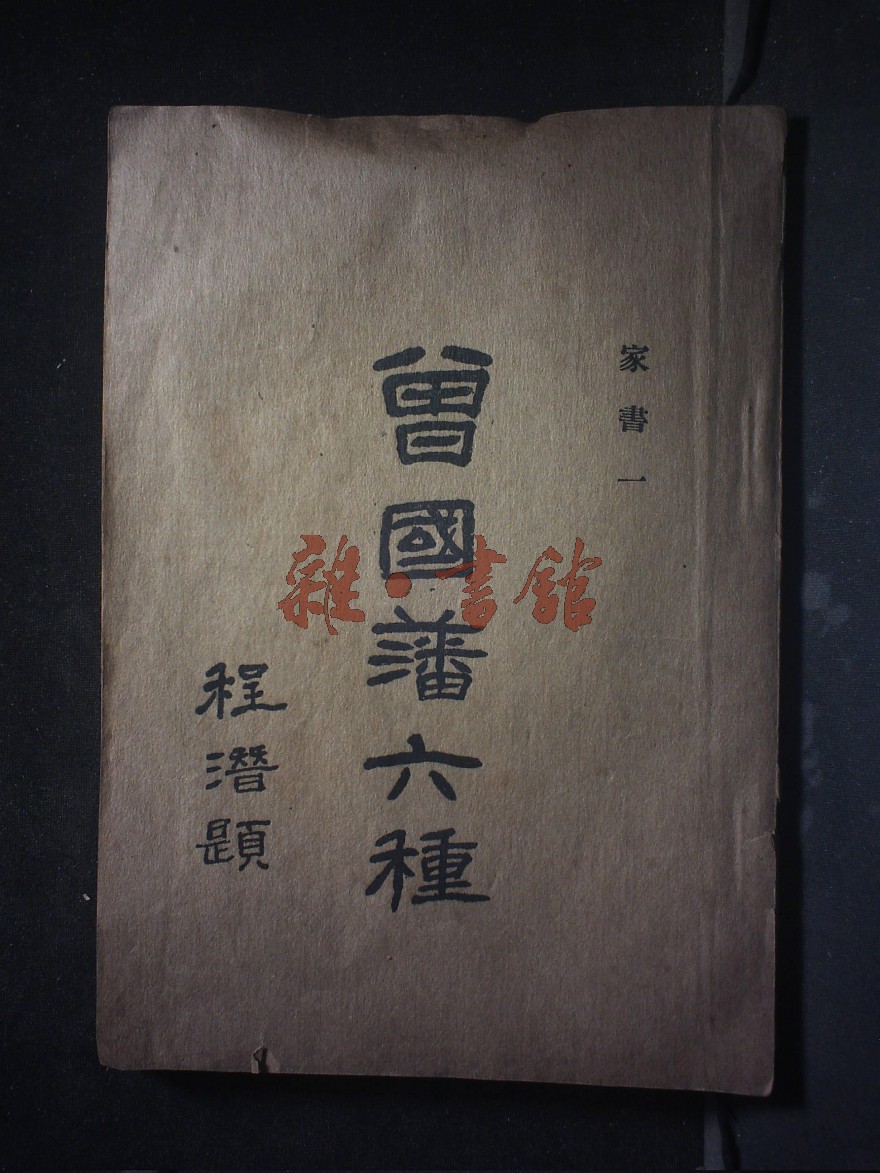 家書一
曾國藩六種
程潛題
雜·書館